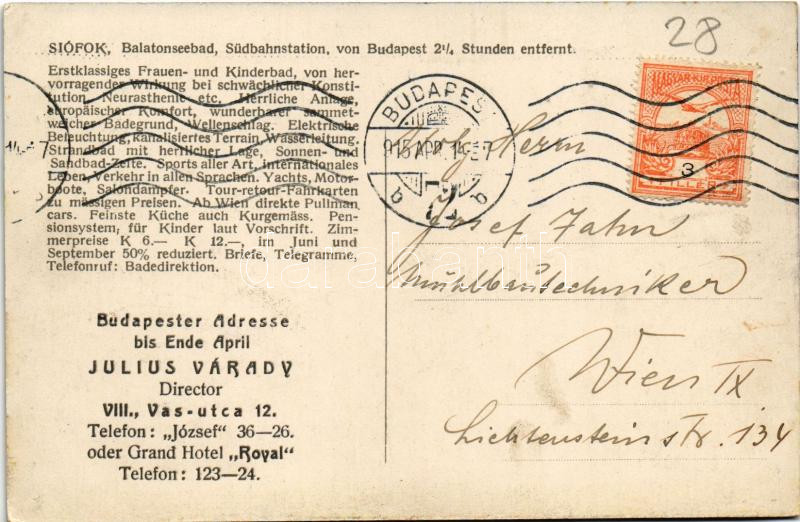 28
SIÓFOK, Balatonseebad, Südbahnstation, von Budapest 2¼ Stunden entfernt.
Erstklassiges Frauen- und Kinderbad, von her-
vorragender Wirkung bei schwächlicher Konsti-
tution, Neurasthenie etc. Herrliche Anlage,
europäischer Komfort, wunderbarer sammet-
weicher Badegrund, Wellenschlag. Elektrische
Beleuchtung, kanalisiertes Terrain, Wasserleitung.
Strandbad mit herrlicher Lage, Sonnen- und
Sandbad-Zelte. Sports aller Art, internationales
Leben, Verkehr in allen Sprachen. Yachts, Motor-
boote, Salondampfer. Tour-retour-Fahrkarten
zu mässigen Preisen. Ab Wien direkte Pullman
cars. Feinste Küche auch Kurgemäss. Pen-
sionsystem, für Kinder laut Vorschrift. Zim-
merpreise K 6.— K 12.—, im Juni und
September 50% reduziert. Briefe, Telegramme,
Telefonruf: Badedirektion.
Budapester Adresse
bis Ende April
JULIUS VÁRADY
Director
VIII., Vas-utca 12.
Telefon: „József" 36—26.
oder Grand Hotel „Royal"
Telefon: 123—24.
BUDAPEST
915 APR 14
b b
MAGYAR KIR. POSTA
3
FILLÉR
Herrn
Josef Jahn
Mühlbautechniker
Wien IX
Lichtensteinstr. 134
darabanth